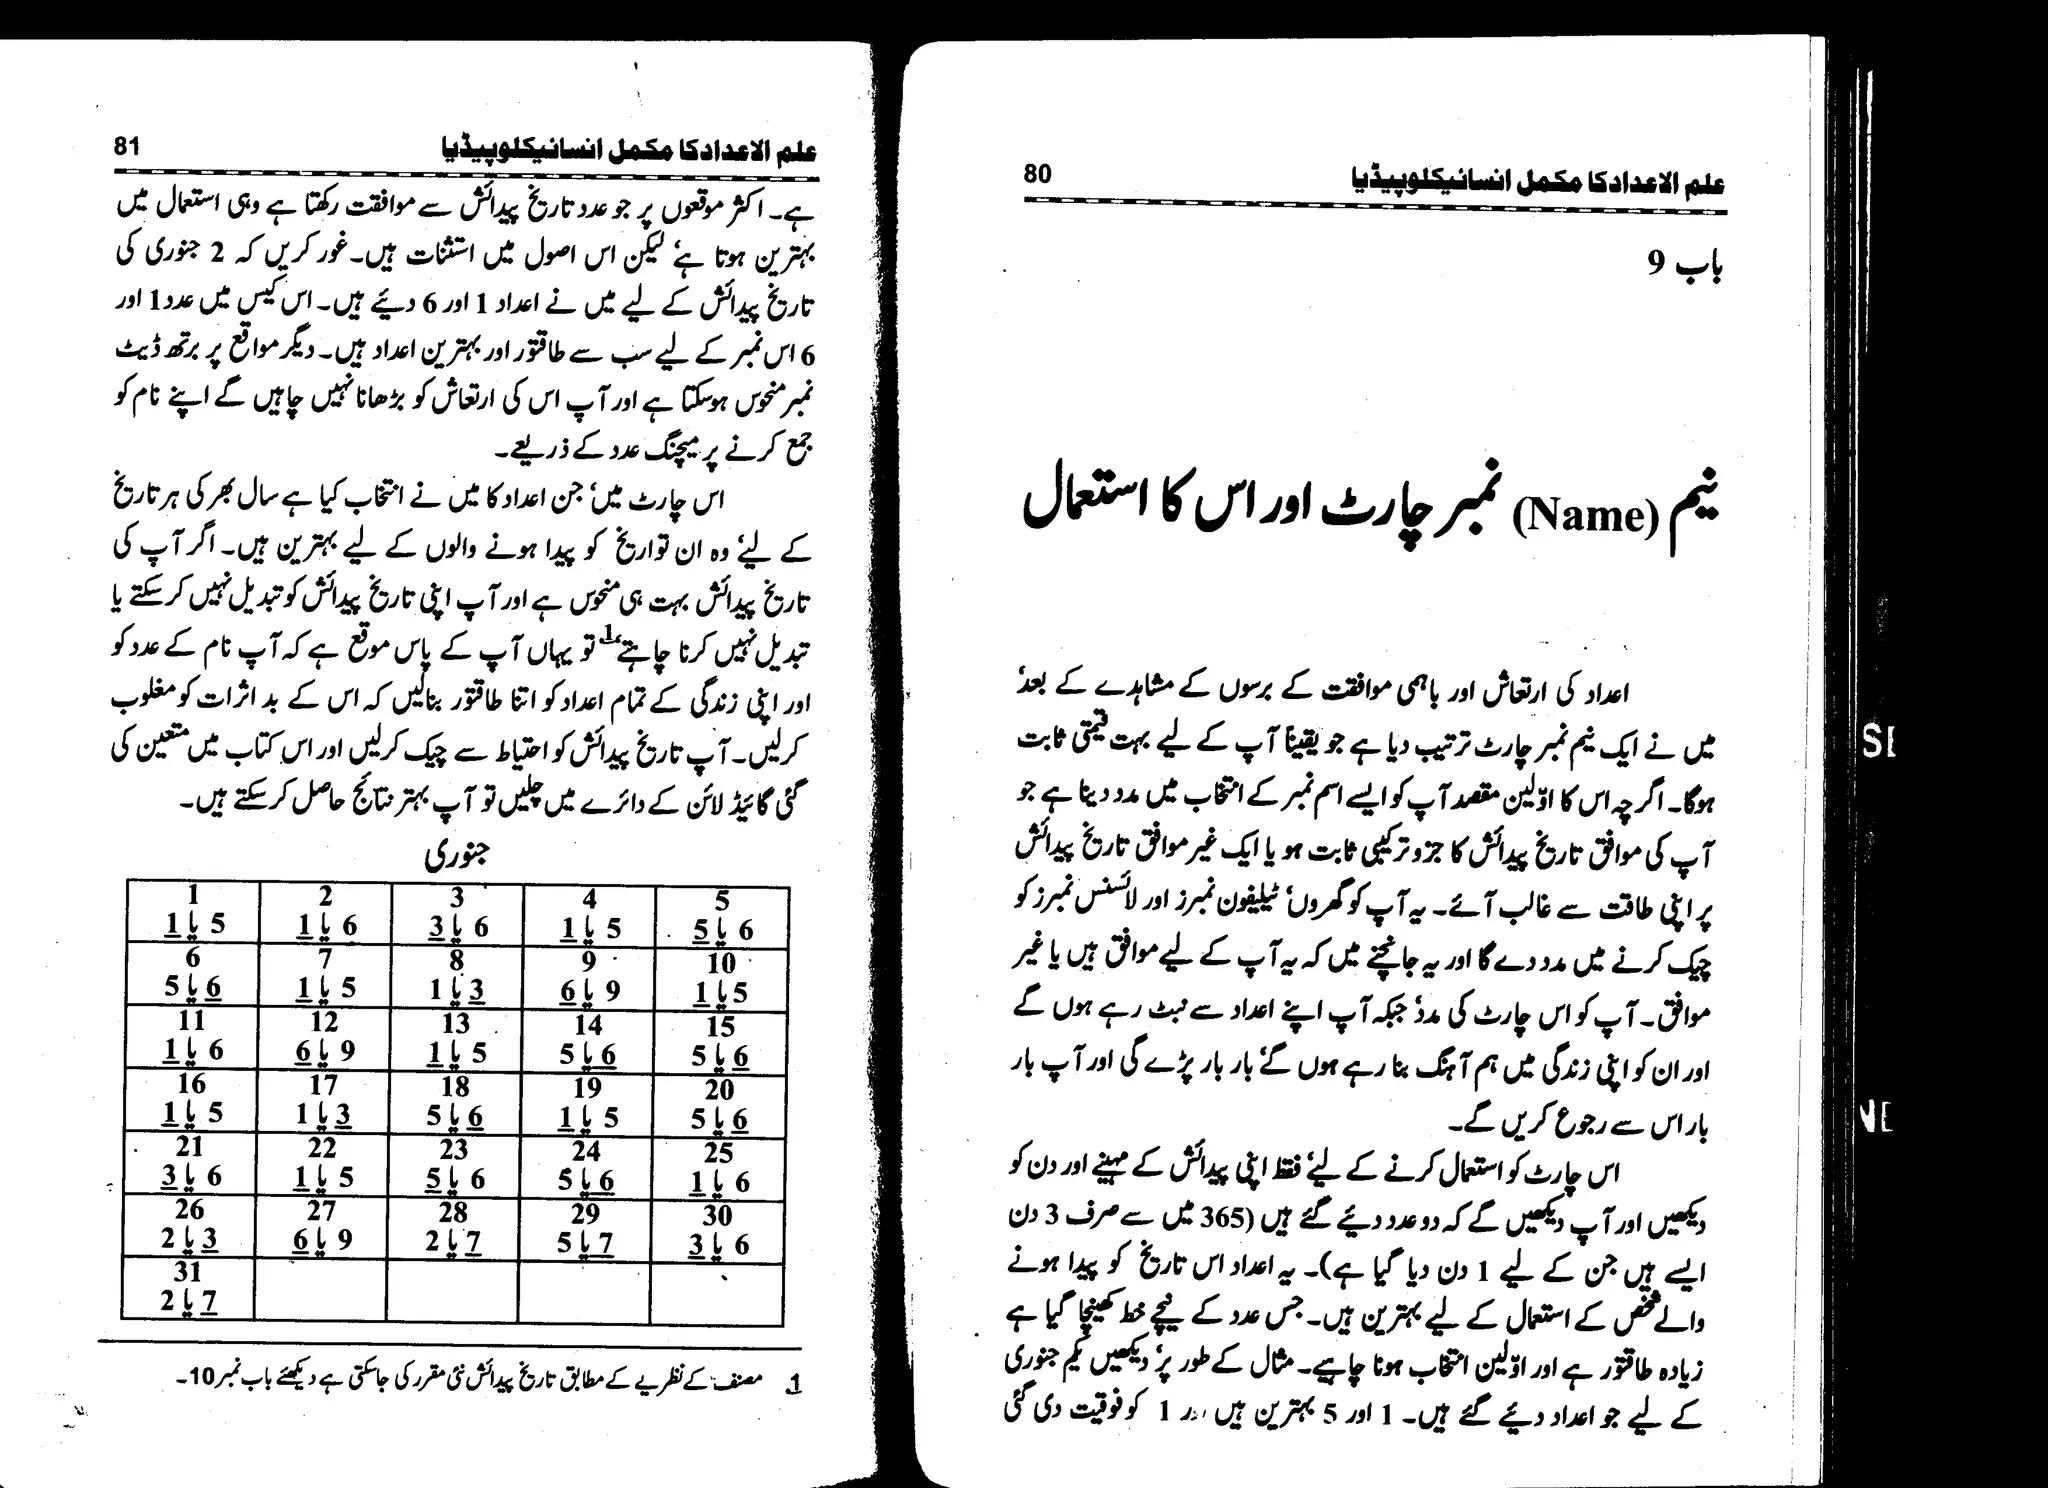 علم الاعداد کا مکمل انسائیکلوپیڈیا 80
باب 9
نیم (Name) نمبر چارٹ اور اس کا استعمال
اعداد کی ارتعاش اور باہمی موافقت کے برسوں کے مشاہدے کے بعد،
میں نے ایک نیم نمبر چارٹ ترتیب دیا ہے جو یقیناً آپ کے لیے بہت قیمتی ثابت
ہوگا۔ اگرچہ اس کا اوّلین مقصد آپ کو ایسے اسم نمبر کے انتخاب میں مدد دینا ہے جو
آپ کی موافق تاریخ پیدائش کا جزو ترکیبی ثابت ہو یا ایک غیر موافق تاریخ پیدائش
پر اپنی طاقت سے غالب آئے۔ یہ آپ کو گھروں، ٹیلیفون نمبرز اور لائسنس نمبرز کو
چیک کرنے میں مدد دے گا اور یہ جانچنے میں کہ یہ آپ کے لیے موافق ہیں یا غیر
موافق۔ آپ کو اس چارٹ کی مدد، جبکہ آپ اپنے اعداد سے نبٹ رہے ہوں گے
اور ان کو اپنی زندگی میں ہم آہنگ بنا رہے ہوں گے، بار بار پڑے گی اور آپ بار
بار اس سے رجوع کریں گے۔
اس چارٹ کو استعمال کرنے کے لیے، فقط اپنی پیدائش کے مہینے اور دن کو
دیکھیں اور آپ دیکھیں گے کہ دو عدد دیئے گئے ہیں (365 میں سے صرف 3 دن
ایسے ہیں جن کے لیے 1 دن دیا گیا ہے)۔ یہ اعداد اس تاریخ کو پیدا ہونے
والے شخص کے استعمال کے لیے بہترین ہیں۔ جس عدد کے نیچے خط کھینچا گیا ہے
زیادہ طاقتور ہے اور اوّلین انتخاب ہونا چاہیے۔ مثال کے طور پر، دیکھیں یکم جنوری
کے لیے جو اعداد دیئے گئے ہیں۔ 1 اور 5 بہترین ہیں اور 1 کو فوقیت دی گئی
علم الاعداد کا مکمل انسائیکلوپیڈیا 81
ہے۔ اکثر موقعوں پر جو عدد تاریخ پیدائش سے موافقت رکھتا ہے وہی استعمال میں
بہترین ہوتا ہے، لیکن اس اصول میں استثنات ہیں۔ غور کریں کہ 2 جنوری کی
تاریخ پیدائش کے لیے میں نے اعداد 1 اور 6 دیئے ہیں۔ اس کیس میں عدد 1 اور
6 اس نمبر کے لیے سب سے طاقتور اور بہترین اعداد ہیں۔ دیگر مواقع پر برتھ ڈیٹ
نمبر منحوس ہوسکتا ہے اور آپ اس کی ارتعاش کو بڑھانا نہیں چاہیں گے اپنے نام کو
جمع کرنے پر میچنگ عدد کے ذریعے۔
اس چارٹ میں، جن اعداد کا میں نے انتخاب کیا ہے سال بھر کی ہر تاریخ
کے لیے، وہ ان تواریخ کو پیدا ہونے والوں کے لیے بہترین ہیں۔ اگر آپ کی
تاریخ پیدائش بہت ہی منحوس ہے اور آپ اپنی تاریخ پیدائش کو تبدیل نہیں کرسکتے یا
تبدیل نہیں کرنا چاہتے،1 تو یہاں آپ کے پاس موقع ہے کہ آپ نام کے عدد کو
اور اپنی زندگی کے تمام اعداد کو اتنا طاقتور بنالیں کہ اس کے بد اثرات کو مغلوب
کرلیں۔ آپ تاریخ پیدائش کو احتیاط سے چیک کرلیں اور اس کتاب میں متعین کی
گئی گائیڈ لائن کے دائرے میں چلیں تو آپ بہتر نتائج حاصل کرسکتے ہیں۔
جنوری
1 2 3 4 5
1 یا 5 1 یا 6 3 یا 6 1 یا 5 5 یا 6
6 7 8 9 10
5 یا 6 1 یا 5 1 یا 3 6 یا 9 1 یا 5
11 12 13 14 15
1 یا 6 6 یا 9 1 یا 5 5 یا 6 5 یا 6
16 17 18 19 20
1 یا 5 1 یا 3 5 یا 6 1 یا 5 5 یا 6
21 22 23 24 25
3 یا 6 1 یا 5 5 یا 6 5 یا 6 1 یا 6
26 27 28 29 30
2 یا 3 6 یا 9 2 یا 7 5 یا 7 3 یا 6
31
2 یا 7
1 مصنف کے نظریے کے مطابق تاریخ پیدائش نئی مقرر کی جاسکتی ہے دیکھئے باب نمبر 10۔